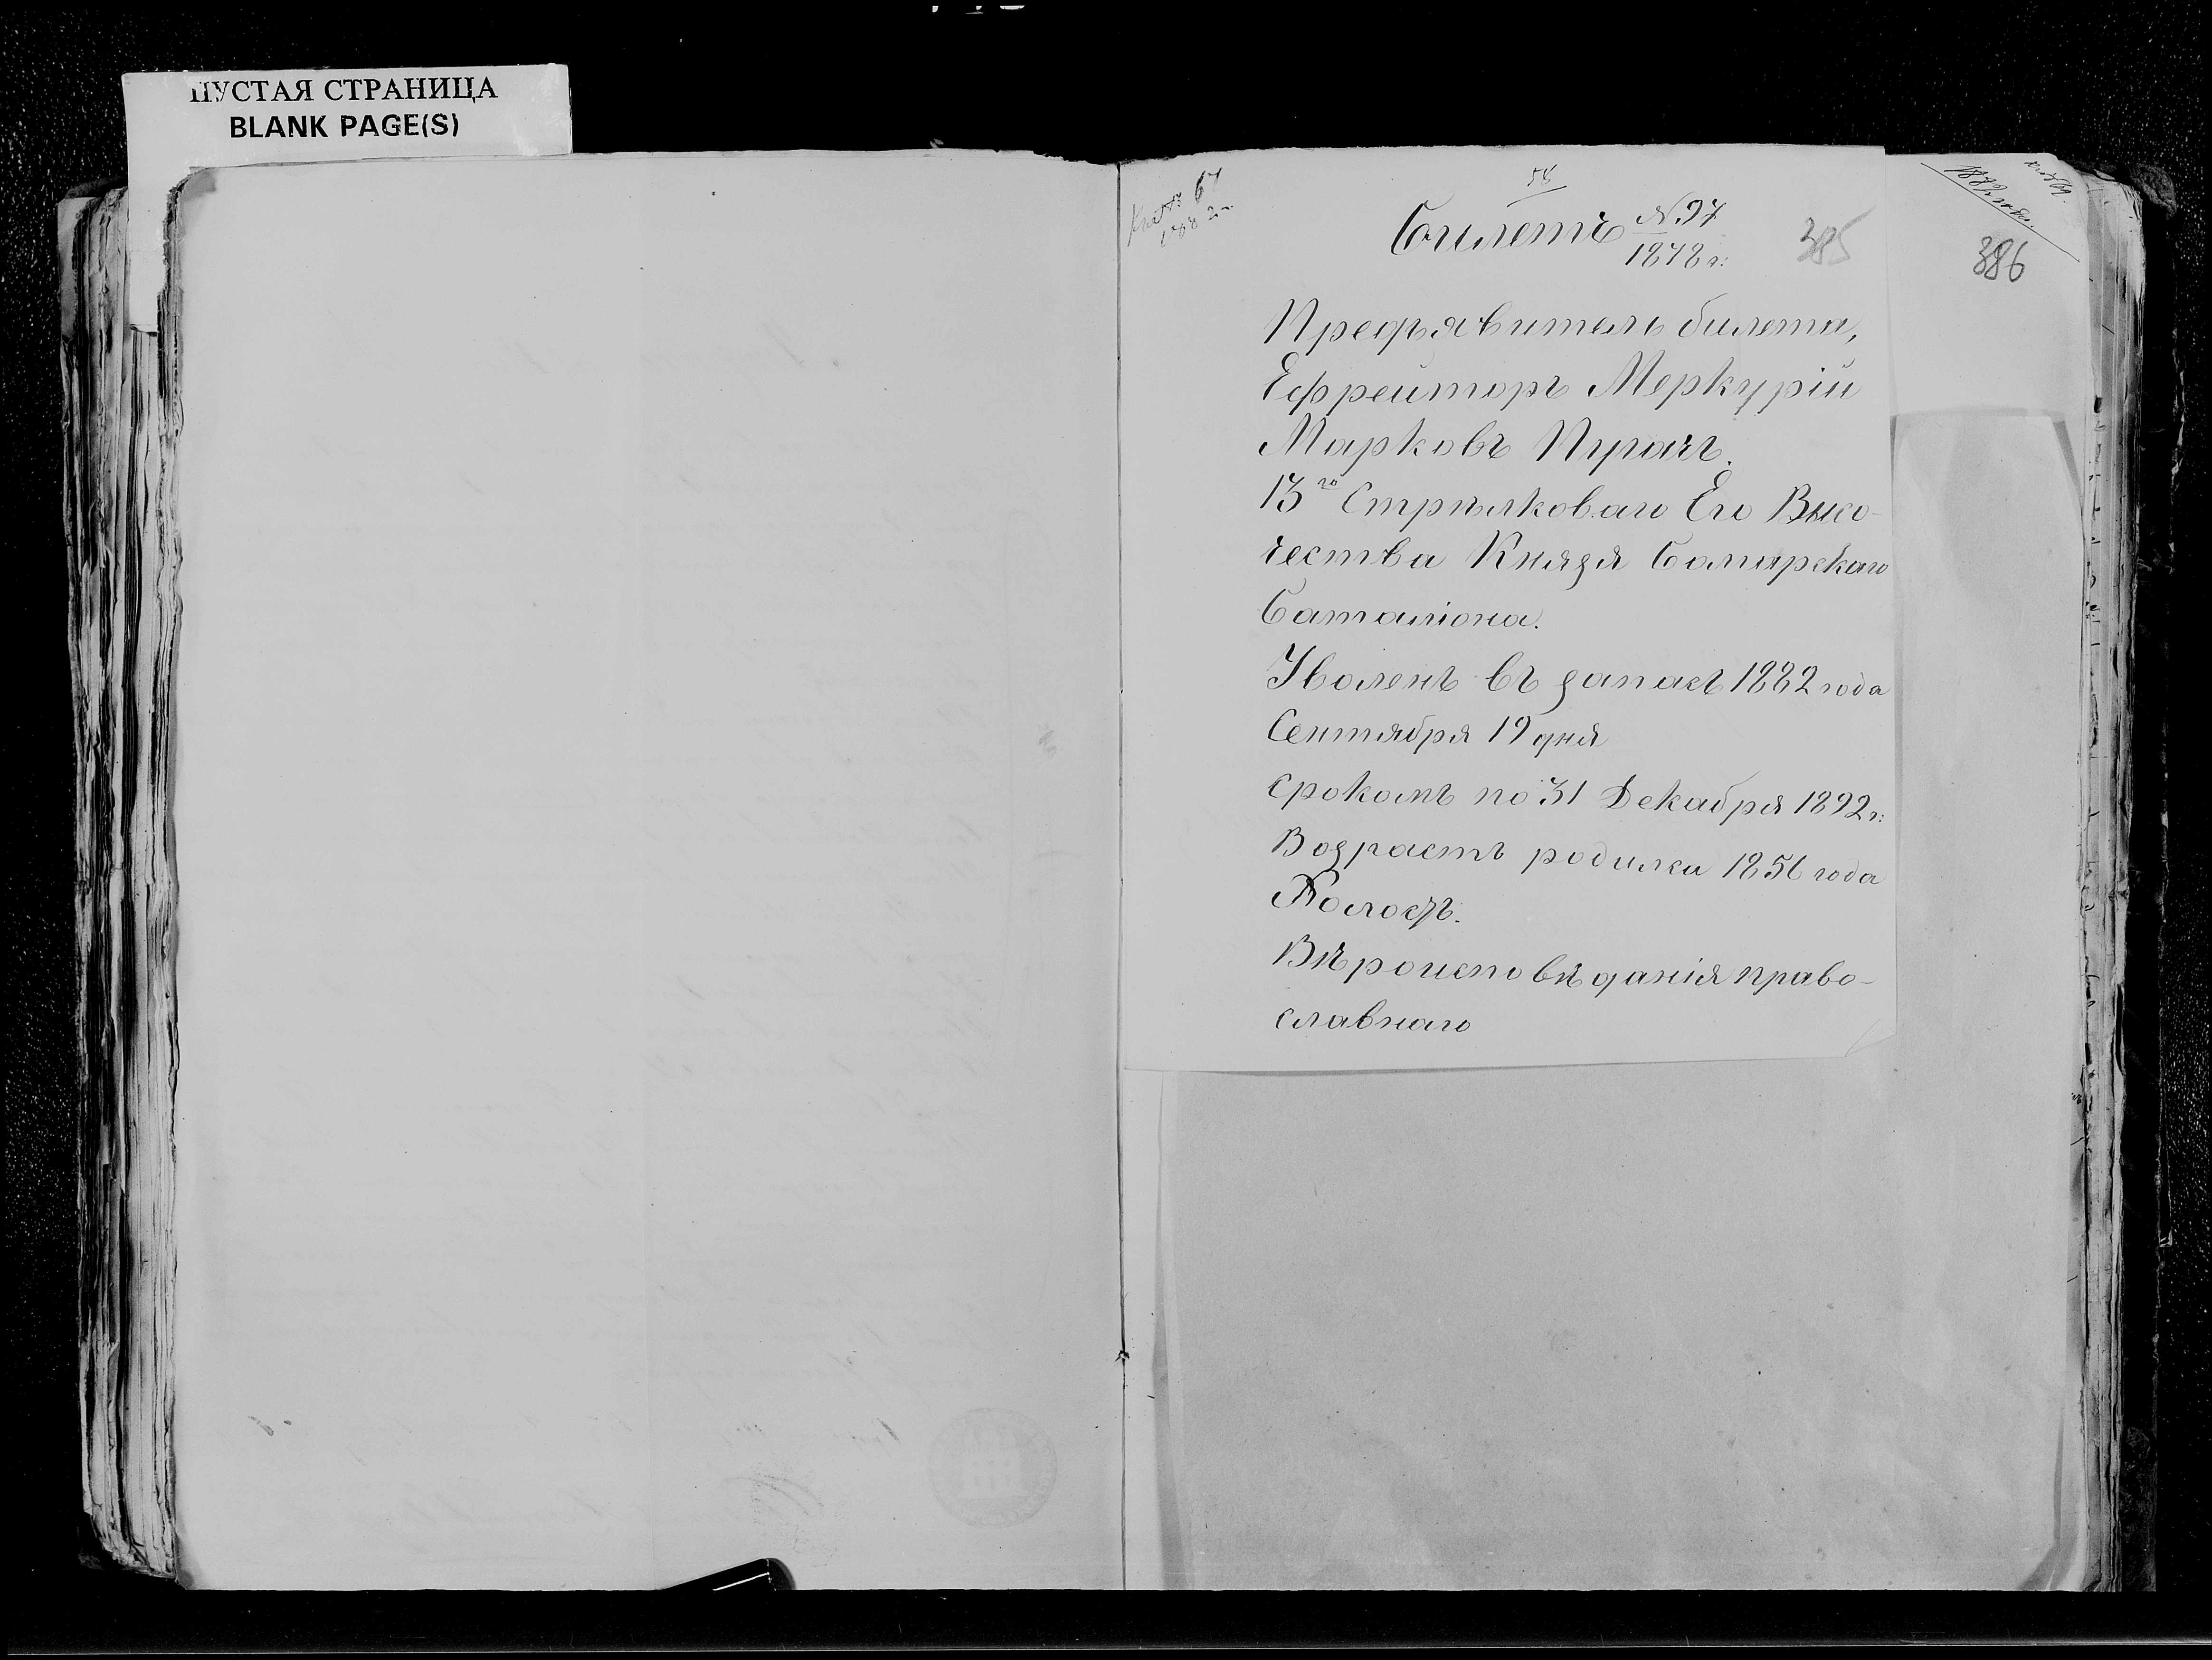 ПУСТАЯ СТРАНИЦА
BLANK PAGE(S)
67
1882 г.
58
Билетъ №97
1878 г:
385
1882 года.
386
Предъявитель билета,
Ефрейторъ Меркурій
Марковъ Пугачъ.
13го Стрѣлковаго Его Высо-
чества Князя Болгарскаго
Баталіона.
Уволенъ въ запасъ 1882 года
Сентября 19 дня
срокомъ по 31 Декабря 1892 г:
Возрастъ родился 1856 года
Холостъ.
Вѣроисповѣданія право-
славнаго